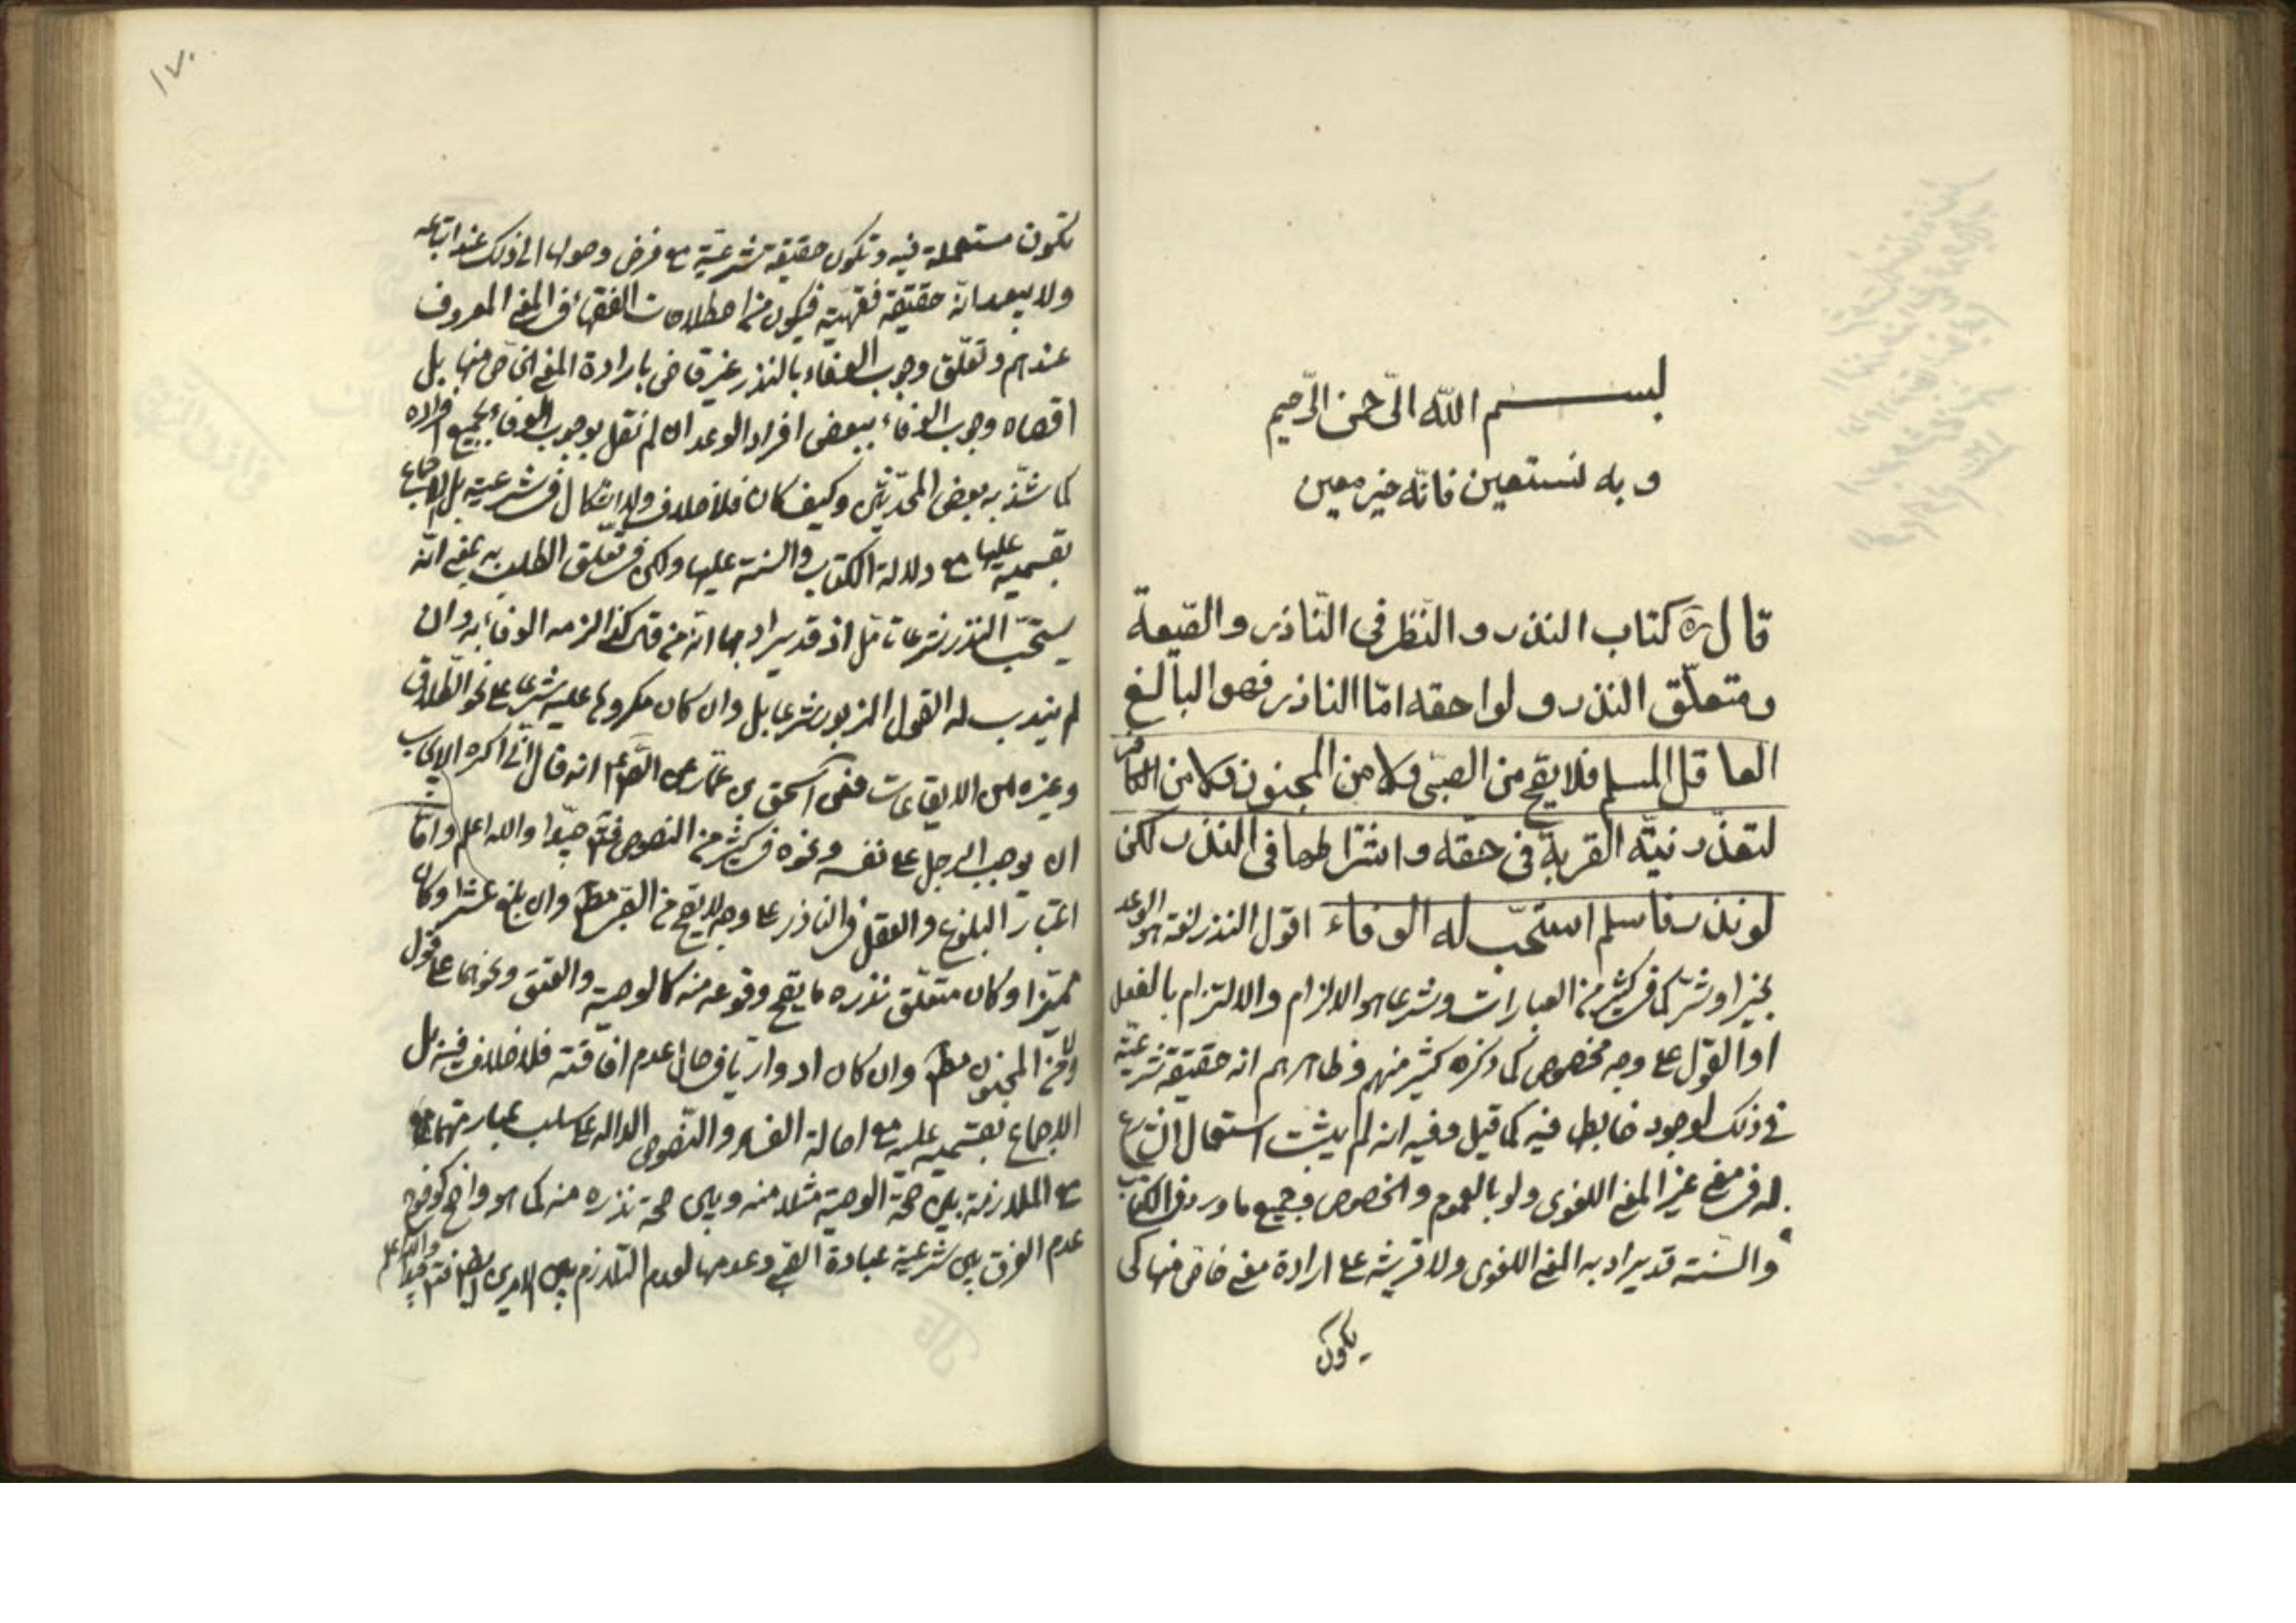 بسم الله الرّحمن الرّحيم
و به نستعين فانّه خير معين
قال ره كتاب النذر و النّظر فى النّاذر و الصّيغة
ومتعلّق النذر و لواحقه امّا الناذر فهو البالغ
العاقل المسلم فلا يصّح من الصبّى ولا من المجنون ولا من الكافر
لتعذّر نيّة القربة فى حقّه واشتراطها فى النذر لكن
لو نذر فاسلم استحّب له الوفاء اقول النذر لغة هو الوعد
بخير او شرّ كما فى كثير من العبارات وشرعا هو الالزام والالتزام بالفعل
او القول على وجه مخصوص كما ذكره كثير منهم وظاهرهم انه حقيقة شرعيّة
فى ذلك لوجود ضابطه فيه كما قيل وفيه انه لم يثبت استعمال الشارع
له فى معنى غير المعنى اللغوى ولو بالعموم والخصوص فجميع ما ورد فى الكتاب
والسّنة قد يراد به المعنى اللغوى ولا قرينة على ارادة معنى خاصّ منها كى
يكون
١٧٠
يكون مستعملة فيه وتكون حقيقة شرعيّة مع فرض وصولها الى ذلك عند اتباعه
ولا يبعد انّه حقيقة فقهيّة فيكون من اصطلاحات الفقهاء فى المعنى المعروف
عندهم وتعلّق وجوب الوفاء بالنذر غير قاض بارادة المعنى الخاّص منها بل
اقصاه وجوب الوفاء ببعض افراد الوعد ان لم نقل بوجوب الوفاء بجميع افراده
كما شذّ به بعض المحدّثين وكيف كان فلا خلاف ولا اشكال فى شرعيته بل الاجماع
بقسميه عليها مع دلالة الكتاب والسنة عليها ولكن فى تعلّق الطلب به بمعنى انّه
يستحّب النذر شرعا تامّل اذ قد يراد بها انّه من قال كذا لزمه الوفاء به وان
لم يندب له القول المزبور شرعا بل وان كان مكروها عليه شرعا على نحو الطّلاق
وغيره من الايقاعات ففى اسحق بن عمّار عن الصّادق ع انه قال انّى اكره الايجاب
ان يوجب الرجل على نفسه ونحوه فى كثير من النصوص فتامّل جيّدا والله اعلم وامّا
اعتبار البلوغ والعقل فى الناذر على وجه لا يصّح من الصّبى مطلقا وان بلغ عشرا وكان
مميّزا وكان متعلّق نذره ما يصّح وقوعه منه كالوصية والعتق ونحوهما على قول
ولا من المجنون مطلقا وان كان ادواريّا فى حال عدم افاقته فلا خلاف فيه بل
الاجماع بقسميه عليه مع اصالة الفساد والنّصوص الدالّه على سلب عبارتهما
مع الملازمة بين صحّة الوصية مثلا منه وبين صحة نذره منه كما هو واضح كوضوح
عدم الفرق بين شرعية عبادة الصّبى وعدمها لعدم التّلازم بين الامرين ايضا فتامّل جيّدا والله اعلم